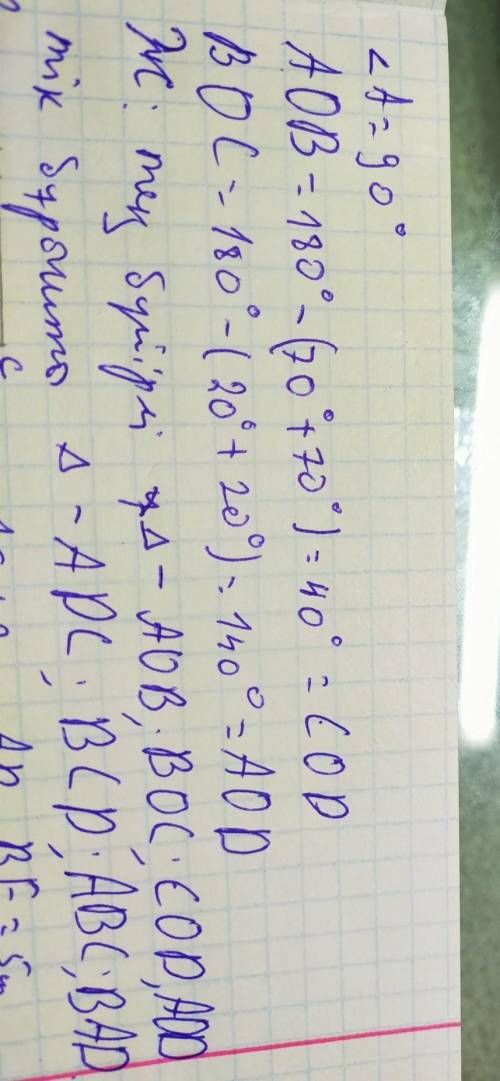 ∠A = 90°
AOB = 180° - (70° + 70°) = 40° = COD
BOC = 180° - (20° + 20°) = 140° = AOD
Ж: тең бүйірлі Δ - AOB; BOC; COD, AOD
тік бұрышты Δ - ADC; BCD; ABC; BAD
BF = 5